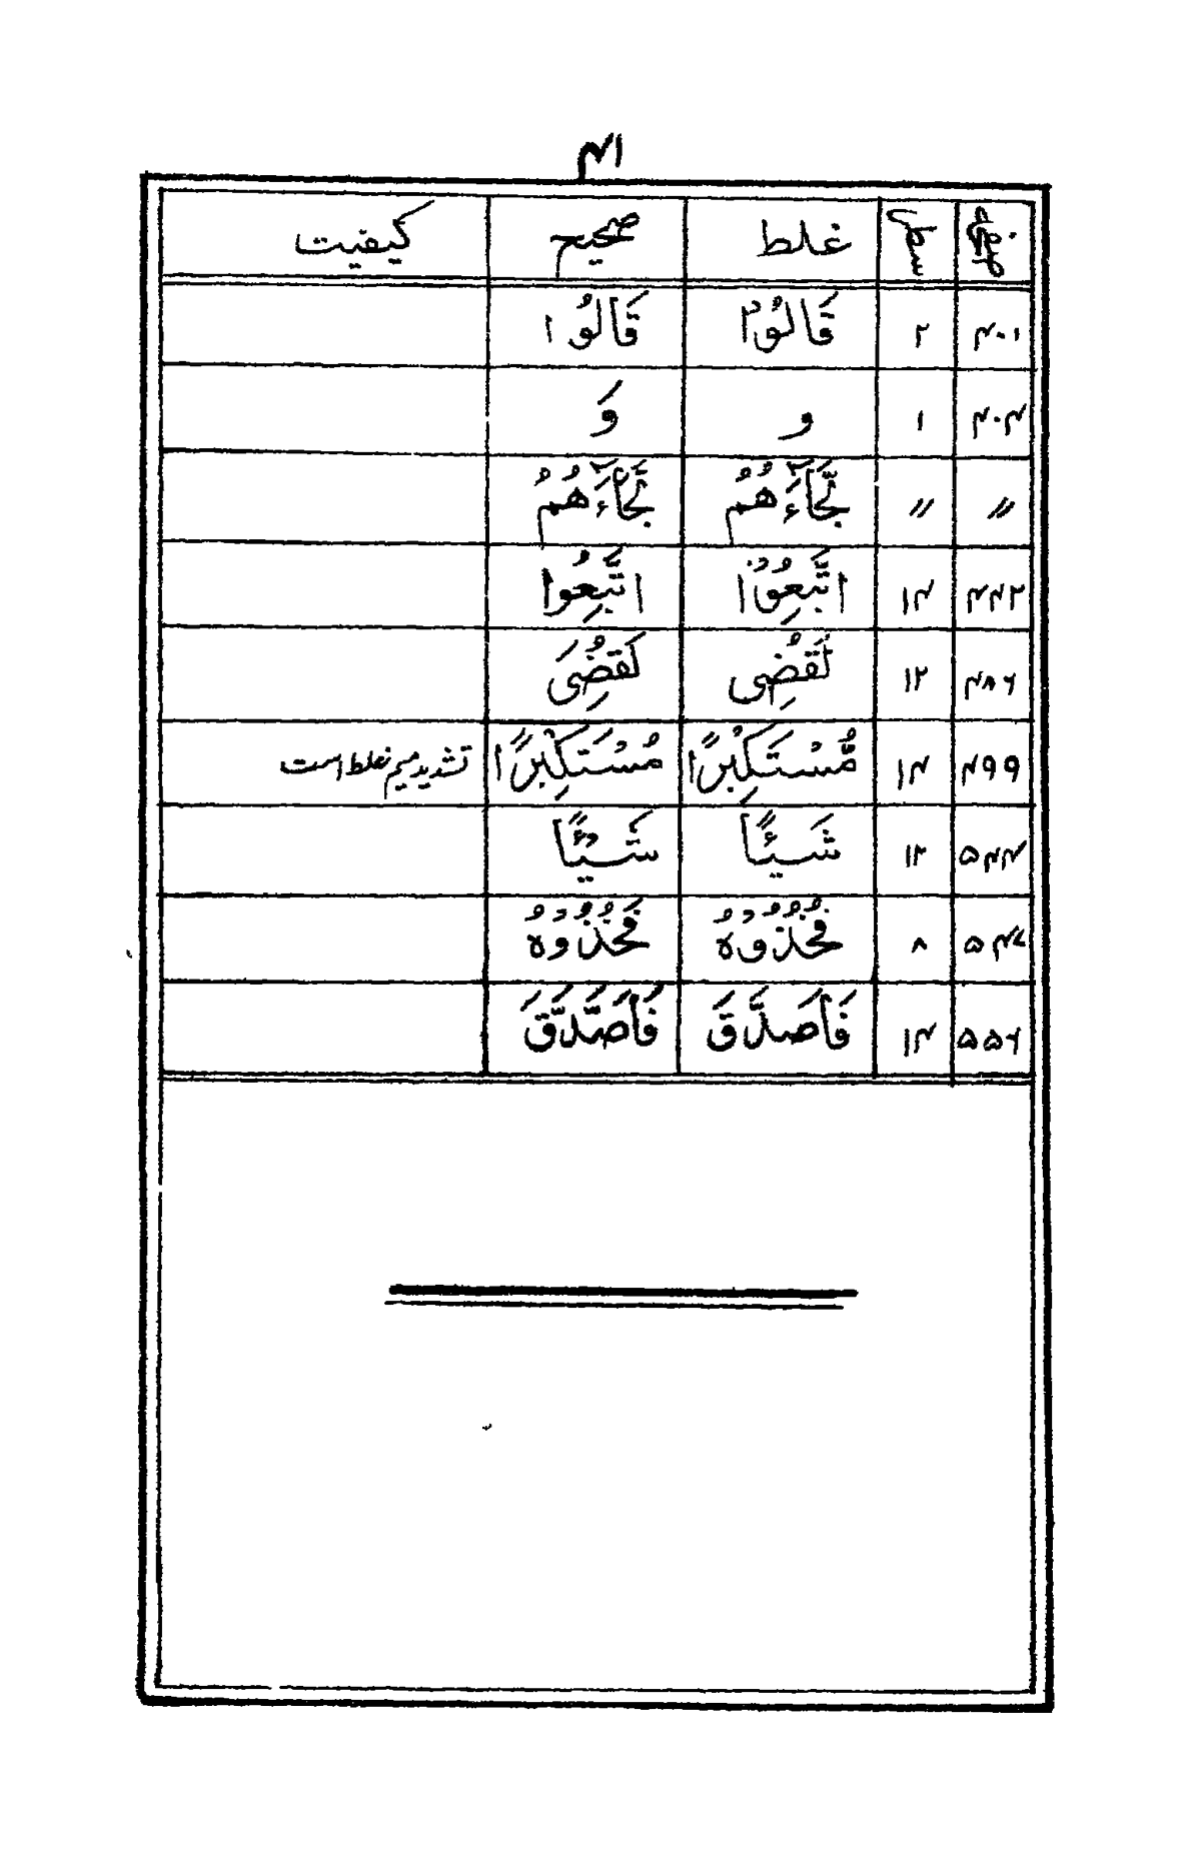 ۴۱
صفحه سطر غلط صحيح كيفيت
۴۰۱ ۲ قَالُوْا قَالُوا
۴۰۴ ۱ و وَ
〃 〃 لَّجَآءَهُمُ لَّجَآءَهُمُ
۴۴۲ ۱۴ اتَّبِعُوْا اتَّبِعُوا
۴۸۶ ۱۲ لَقُضِى لَقُضِىَ
۴۹۹ ۱۴ مُّسْتَكْبِرًا مُسْتَكْبِرًا تشديد ميم غلط است
۵۴۴ ۱۲ شَيـًٔا شَيْـًٔا
۵۴۷ ۸ فُخُذُوْهُ فَخُذُوْهُ
۵۵۶ ۱۴ فَاَصَدَّقَ فَاَصَّدَّقَ